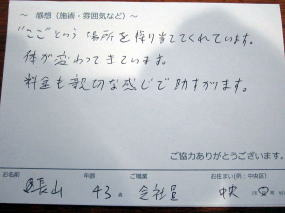 ～ 感想（施術・雰囲気など）～
"ここ"という場所を探り当ててくれています。
体が変わってきています。
料金も親切な感じで助かります。
ご協力ありがとうございます。
お名前 年齢 ご職業 お住まい(例：中央区)
長山 43 歳 会社員 中央 区